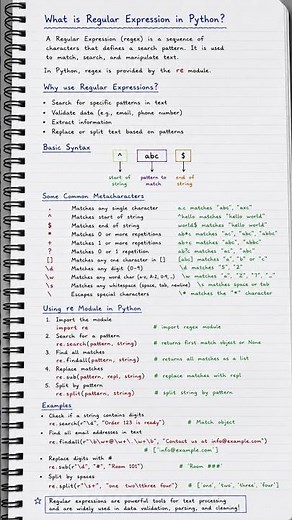 What is Regular Expression in Python?
A Regular Expression (regex) is a sequence of
characters that defines a search pattern. It is used
to match, search, and manipulate text.
In Python, regex is provided by the re module.
Why use Regular Expressions?
• Search for specific patterns in text
• Validate data (e.g., email, phone number)
• Extract information
• Replace or split text based on patterns
Basic Syntax
^ abc $
start of string pattern to match end of string
Some Common Metacharacters
Matches any single character a.c matches "abc", "axc"
^ Matches start of string ^hello matches "hello world"
$ Matches end of string world$ matches "hello world"
* Matches 0 or more repetitions ab*c matches "ac", "abc", "abbc"
+ Matches 1 or more repetitions ab+c matches "abc", "abbc"
? Matches 0 or 1 repetition ab?c matches "ac", "abc"
[] Matches any one character in [] [abc] matches "a", "b" or "c"
\d Matches any digit (0-9) \d matches "5", "2"
\w Matches any word char \w matches "a", "Z", "7", "_"
\s Matches any whitespace (space, tab, newline) \s matches space or tab
\ Escapes special characters \* matches the "*" character
Using re Module in Python
1. Import the module
import re # import regex module
2. Search for a pattern
re.search(pattern, string) # returns first match object or None
3. Find all matches
re.findall(pattern, string) # returns all matches as a list
4. Replace matches
re.sub(pattern, repl, string) # replace matches with repl
5. Split by pattern
re.split(pattern, string) # split string by pattern
Examples
• Check if a string contains digits
re.search(r"\d", "Order 123 is ready") # Match object
• Find all email addresses in text
re.findall(r"\b\w+@\w+\.\w+\b", "Contact us at info@example.com")
# ['info@example.com']
• Replace digits with #
re.sub(r"\d", "#", "Room 101") # "Room ###"
• Split by spaces
re.split(r"\s+", "one two\tthree four") # ['one', 'two', 'three', 'four']
Regular expressions are powerful tools for text processing
and are widely used in data validation, parsing, and cleaning!